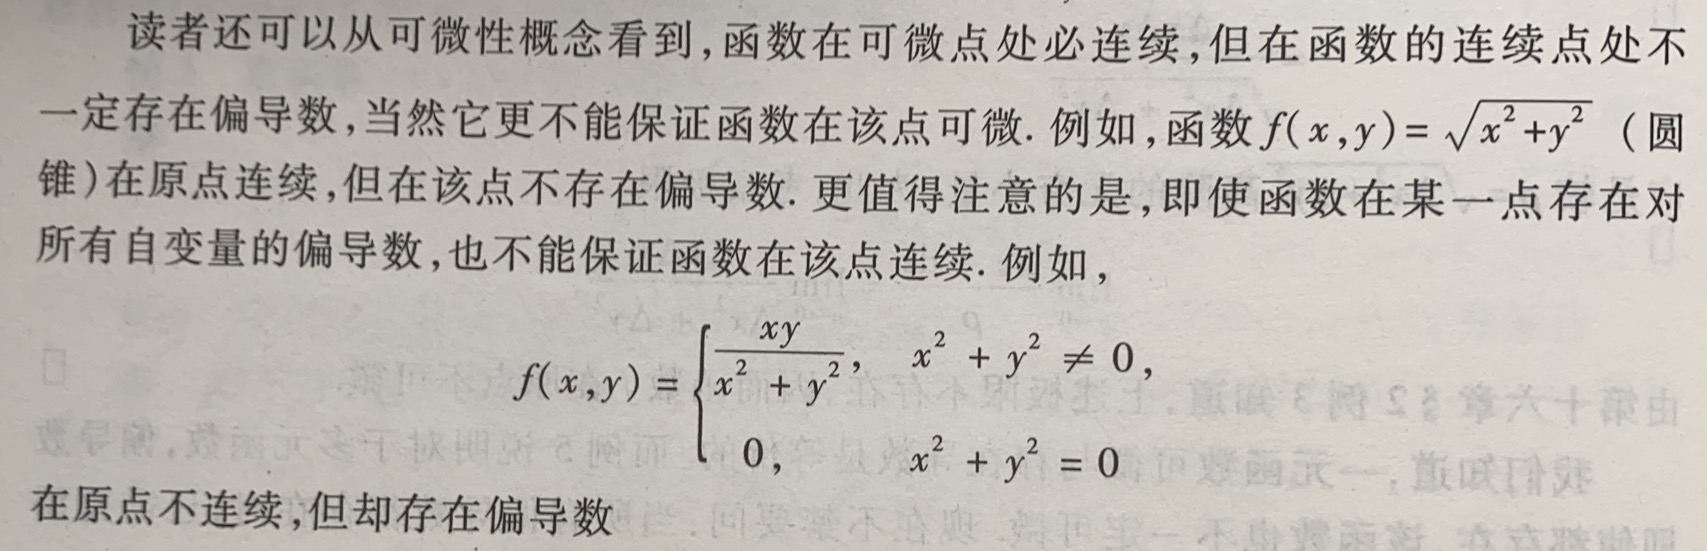 读者还可以从可微性概念看到,函数在可微点处必连续,但在函数的连续点处不
一定存在偏导数,当然它更不能保证函数在该点可微. 例如,函数 f(x,y)=√(x²+y²) (圆
锥)在原点连续,但在该点不存在偏导数. 更值得注意的是,即使函数在某一点存在对
所有自变量的偏导数,也不能保证函数在该点连续. 例如,
f(x,y) = { xy/(x² + y²), x² + y² ≠ 0,
0, x² + y² = 0
在原点不连续,但却存在偏导数